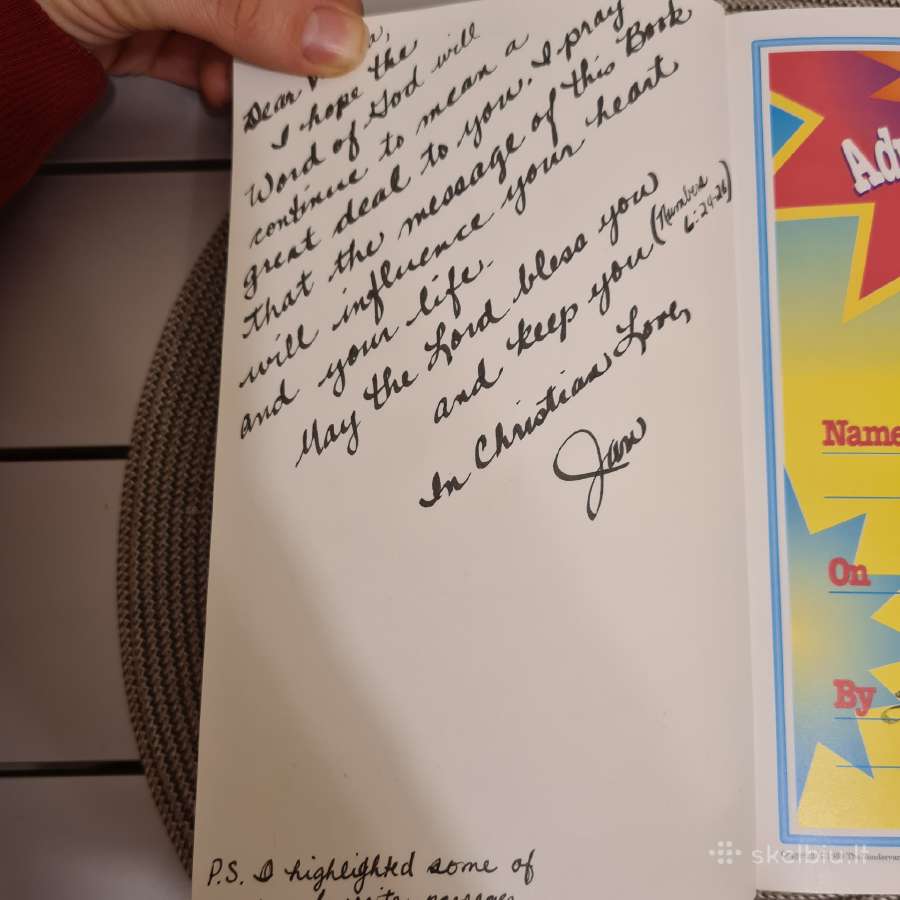 Dear
I hope the
Word of God will
continue to mean a
great deal to you. I pray
that the message of this Book
will influence your heart
and your life.
May the Lord bless you
and keep you (Numbers
6:24-26)
In Christian Love,
Jan
P.S. I highlighted some of
Name
On
By
skelbiu.lt